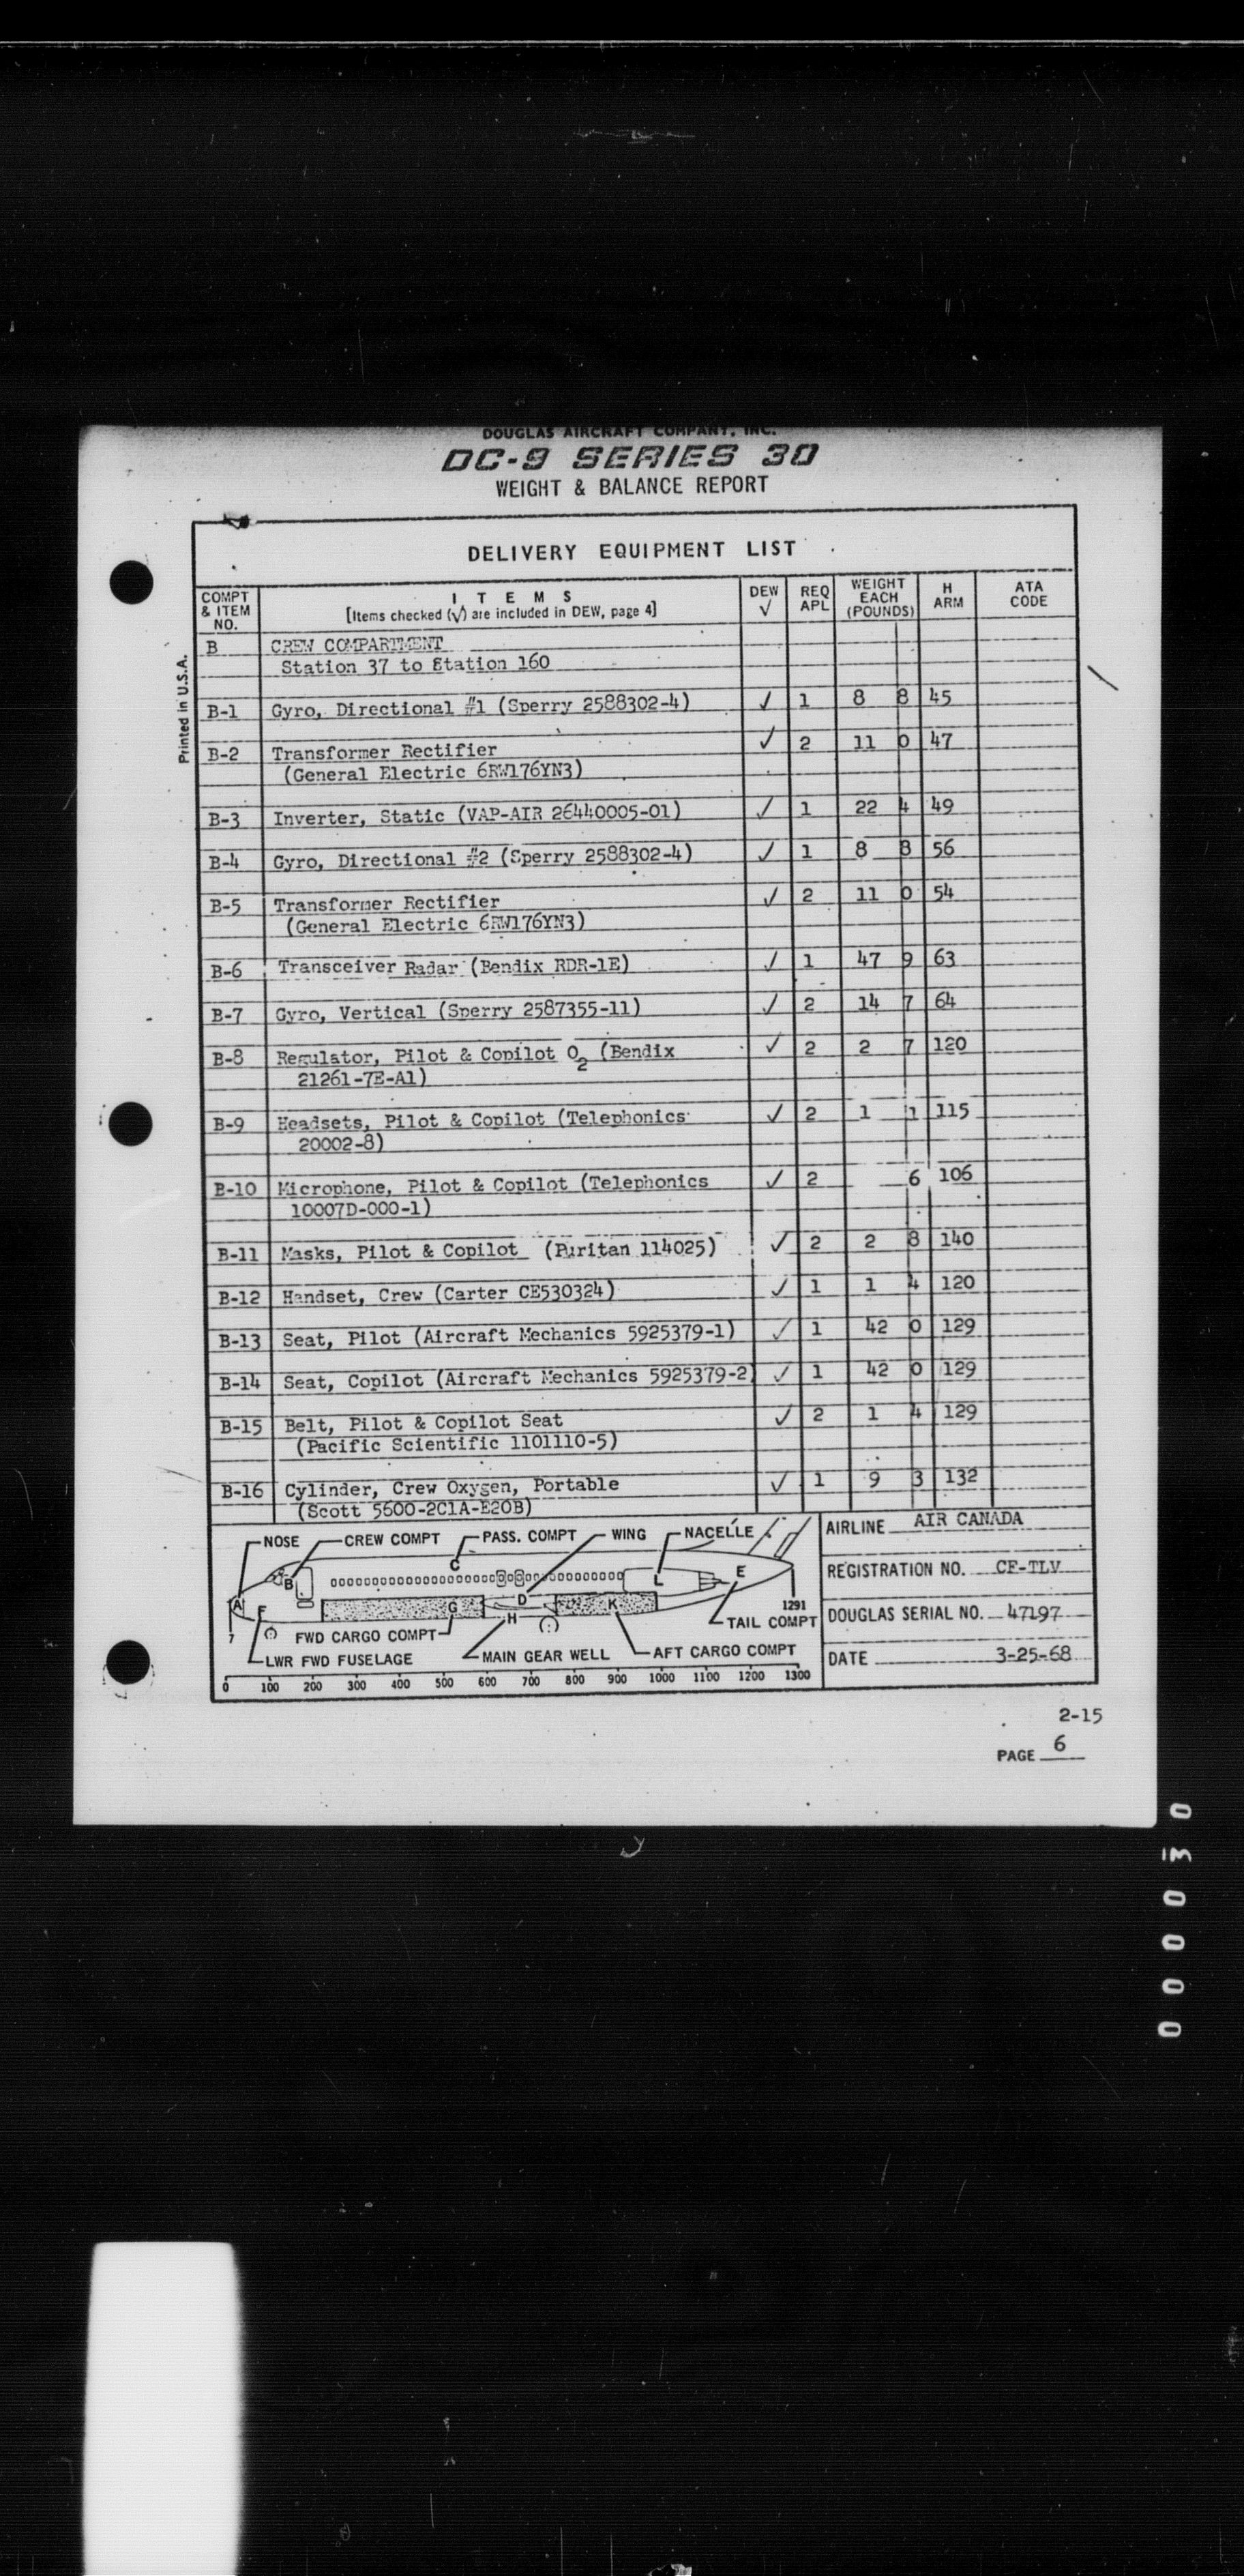 DOUGLAS AIRCRAFT COMPANY, INC.
DC-9 SERIES 30
WEIGHT & BALANCE REPORT
Printed in U.S.A.
DELIVERY EQUIPMENT LIST
COMPT & ITEM NO. ITEMS [Items checked (√) are included in DEW, page 4] DEW √ REQ APL WEIGHT EACH (POUNDS) H ARM ATA CODE
B CREW COMPARTMENT
Station 37 to Station 160
B-1 Gyro, Directional #1 (Sperry 2588302-4) ✓ 1 8 8 45
B-2 Transformer Rectifier ✓ 2 11 0 47
(General Electric 6RW176YN3)
B-3 Inverter, Static (VAP-AIR 26440005-01) ✓ 1 22 4 49
B-4 Gyro, Directional #2 (Sperry 2588302-4) ✓ 1 8 8 56
B-5 Transformer Rectifier ✓ 2 11 0 54
(General Electric 6RW176YN3)
B-6 Transceiver Radar (Bendix RDR-1E) ✓ 1 47 9 63
B-7 Gyro, Vertical (Sperry 2587355-11) ✓ 2 14 7 64
B-8 Regulator, Pilot & Copilot O2 (Bendix ✓ 2 2 7 120
21261-7E-A1)
B-9 Headsets, Pilot & Copilot (Telephonics ✓ 2 1 1 115
20002-8)
B-10 Microphone, Pilot & Copilot (Telephonics ✓ 2 6 106
10007D-000-1)
B-11 Masks, Pilot & Copilot (Puritan 114025) ✓ 2 2 8 140
B-12 Handset, Crew (Carter CE530324) ✓ 1 1 4 120
B-13 Seat, Pilot (Aircraft Mechanics 5925379-1) ✓ 1 42 0 129
B-14 Seat, Copilot (Aircraft Mechanics 5925379-2) ✓ 1 42 0 129
B-15 Belt, Pilot & Copilot Seat ✓ 2 1 4 129
(Pacific Scientific 1101110-5)
B-16 Cylinder, Crew Oxygen, Portable ✓ 1 9 3 132
(Scott 5600-2C1A-E20B)
NOSE CREW COMPT PASS. COMPT WING NACELLE
A B C D E F G H K L
7 1291
FWD CARGO COMPT TAIL COMPT
LWR FWD FUSELAGE MAIN GEAR WELL AFT CARGO COMPT
0 100 200 300 400 500 600 700 800 900 1000 1100 1200 1300
AIRLINE AIR CANADA
REGISTRATION NO. CF-TLV
DOUGLAS SERIAL NO. 47197
DATE 3-25-68
2-15
PAGE 6
000030